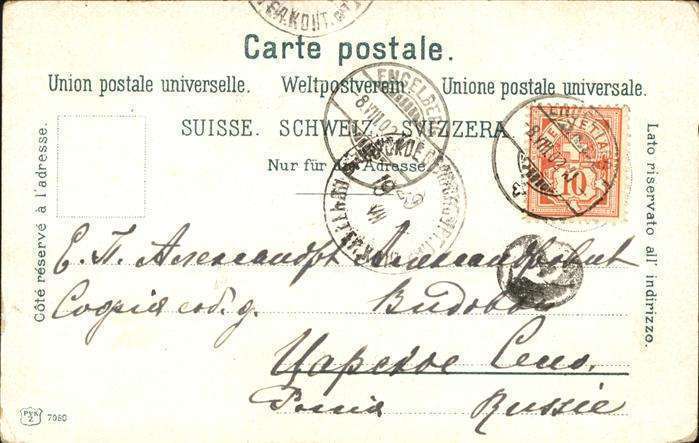 Carte postale.
Union postale universelle. Weltpostverein. Unione postale universale.
SUISSE. SCHWEIZ. SVIZZERA.
Nur für die Adresse.
Côté réservé à l'adresse.
Lato riservato all' indirizzo.
ENGELBERG
8.VII.02
HELVETIA
10
Е. П. Александръ Александровичъ
София соб. д. Видовъ
Царское Село.
Россія Russie
PVKZ 7080